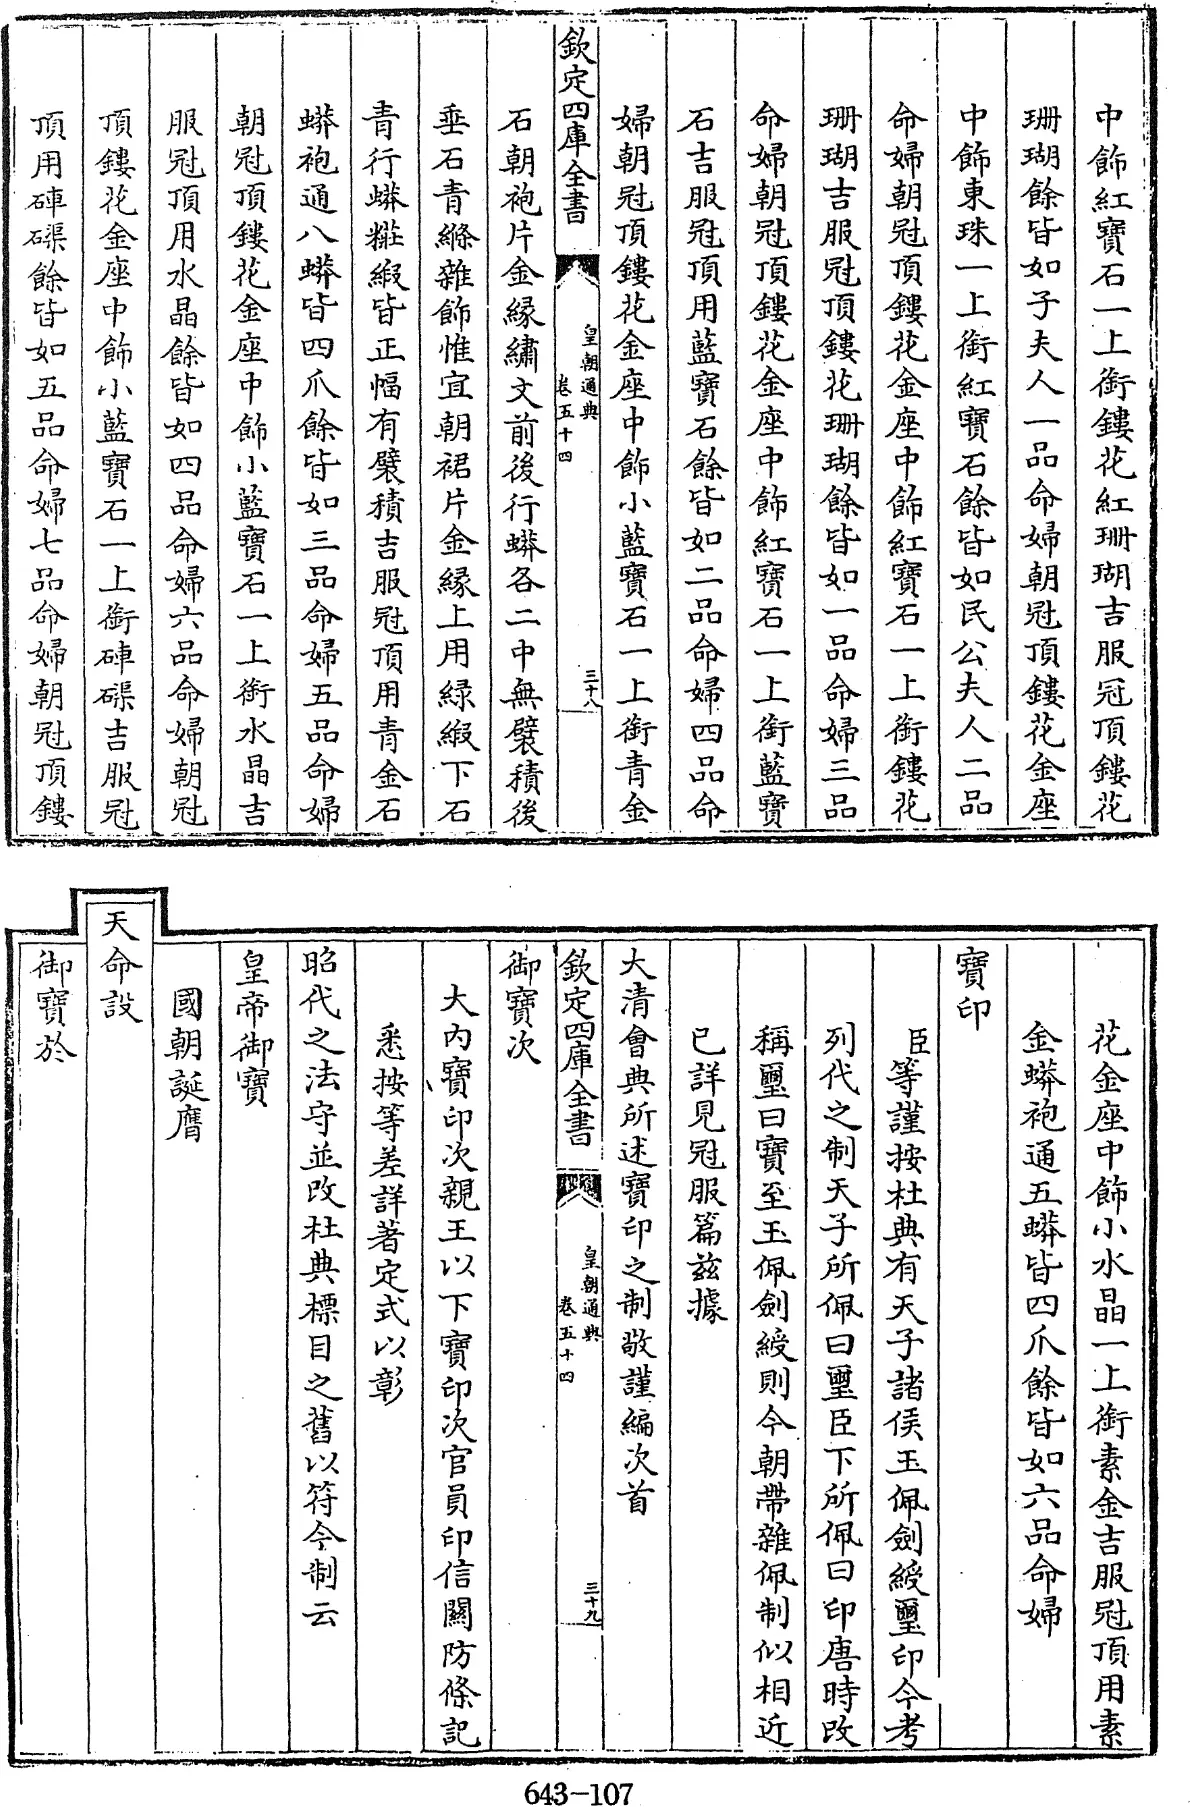 中飾紅寶石一上銜鏤花紅珊瑚吉服冠頂鏤花
珊瑚餘皆如子夫人一品命婦朝冠頂鏤花金座
中飾東珠一上銜紅寶石餘皆如民公夫人二品
命婦朝冠頂鏤花金座中飾紅寶石一上銜鏤花
珊瑚吉服冠頂鏤花珊瑚餘皆如一品命婦三品
命婦朝冠頂鏤花金座中飾紅寶石一上銜藍寶
石吉服冠頂用藍寶石餘皆如二品命婦四品命
婦朝冠頂鏤花金座中飾小藍寶石一上銜青金
欽定四庫全書
皇朝通典
卷五十四
三十八
石朝袍片金緣繡文前後行蟒各二中無襞積後
垂石青縧雜飾惟宜朝裙片金緣上用緑緞下石
青行蟒糚緞皆正幅有襞積吉服冠頂用青金石
蟒袍通八蟒皆四爪餘皆如三品命婦五品命婦
朝冠頂鏤花金座中飾小藍寶石一上銜水晶吉
服冠頂用水晶餘皆如四品命婦六品命婦朝冠
頂鏤花金座中飾小藍寶石一上銜硨磲吉服冠
頂用硨磲餘皆如五品命婦七品命婦朝冠頂鏤
花金座中飾小水晶一上銜素金吉服冠頂用素
金蟒袍通五蟒皆四爪餘皆如六品命婦
寶印
臣等謹按杜典有天子諸侯玉佩劍綬璽印今考
列代之制天子所佩曰璽臣下所佩曰印唐時改
稱璽曰寶至玉佩劍綬則今朝帶雜佩制似相近
已詳見冠服篇兹據
大清會典所述寶印之制敬謹編次首
欽定四庫全書
皇朝通典
卷五十四
三十九
御寶次
大内寶印次親王以下寶印次官員印信關防條記
悉按等差詳著定式以彰
昭代之法守並改杜典標目之舊以符今制云
皇帝御寶
國朝誕膺
天命設
御寶於
643-107